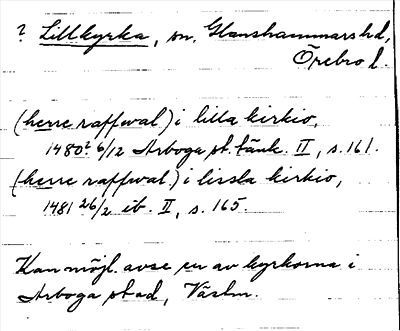 ? Lillkyrka, sn, Glanshammars hd,
Örebro l.
(herre raffwal) i lilla kirkio,
1480 6/12 Arboga st. tänk. II, s. 161.
(herre raffwal) i lissla kirkio,
1481 26/2 ib. II, s. 165.
Kan möjl. avse en av kyrkorna i
Arboga stad, Västm.